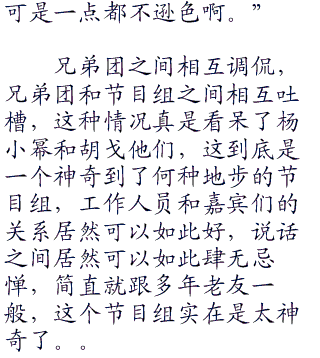 可是一点都不逊色啊。”
兄弟团之间相互调侃，
兄弟团和节目组之间相互吐
槽，这种情况真是看呆了杨
小幂和胡戈他们，这到底是
一个神奇到了何种地步的节
目组，工作人员和嘉宾们的
关系居然可以如此好，说话
之间居然可以如此肆无忌
惮，简直就跟多年老友一
般，这个节目组实在是太神
奇了。。